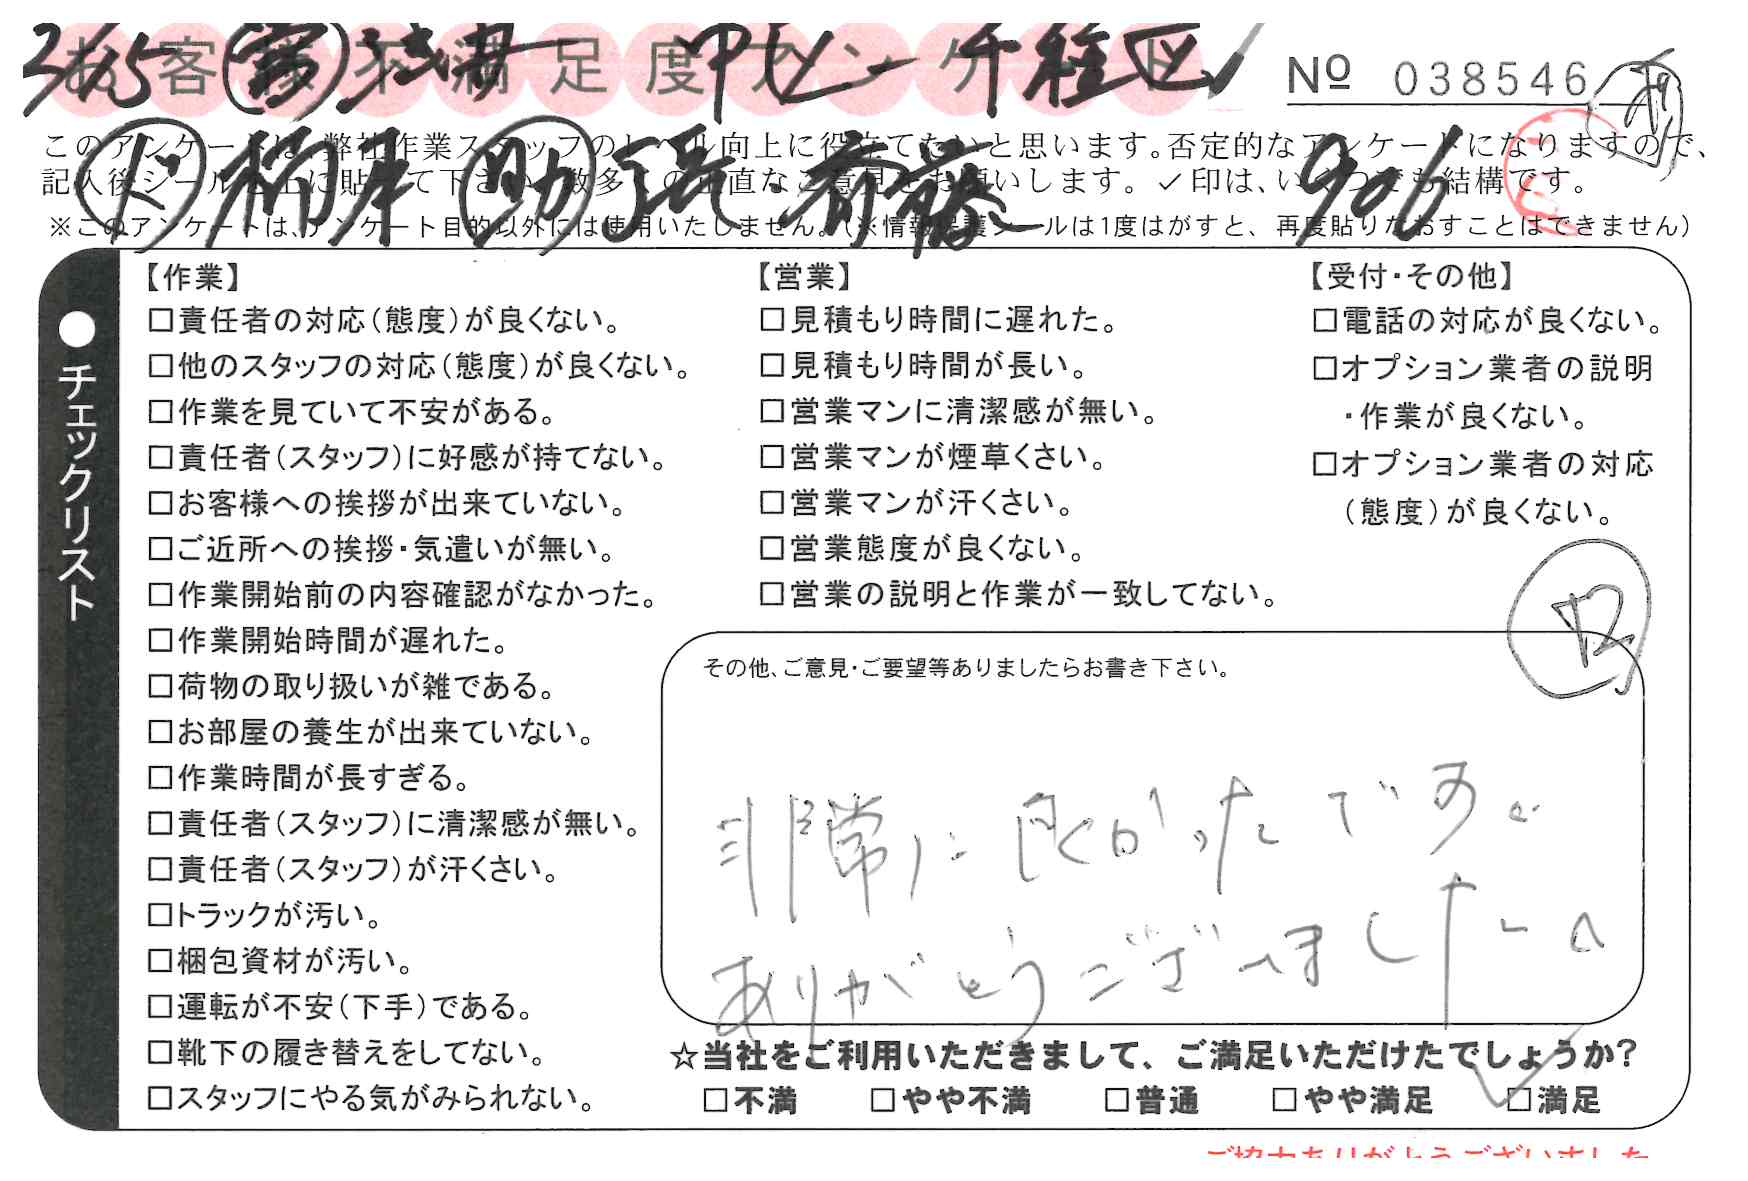 お客様不満足度アンケート
3/15 千種区
№ 038546
このアンケートは、弊社作業スタッフのレベル向上に役立てたいと思います。否定的なアンケートになりますので、
906
記入後シールを上に貼って下さい。数多くの正直なご意見をお願いします。✓印は、いくつでも結構です。
※このアンケートは、アンケート目的以外には使用いたしません。(※情報保護シールは1度はがすと、再度貼りなおすことはできません)
●チェックリスト
【作業】
□責任者の対応(態度)が良くない。
□他のスタッフの対応(態度)が良くない。
□作業を見ていて不安がある。
□責任者(スタッフ)に好感が持てない。
□お客様への挨拶が出来ていない。
□ご近所への挨拶・気遣いが無い。
□作業開始前の内容確認がなかった。
□作業開始時間が遅れた。
□荷物の取り扱いが雑である。
□お部屋の養生が出来ていない。
□作業時間が長すぎる。
□責任者(スタッフ)に清潔感が無い。
□責任者(スタッフ)が汗くさい。
□トラックが汚い。
□梱包資材が汚い。
□運転が不安(下手)である。
□靴下の履き替えをしてない。
□スタッフにやる気がみられない。
【営業】
□見積もり時間に遅れた。
□見積もり時間が長い。
□営業マンに清潔感が無い。
□営業マンが煙草くさい。
□営業マンが汗くさい。
□営業態度が良くない。
□営業の説明と作業が一致してない。
【受付・その他】
□電話の対応が良くない。
□オプション業者の説明
・作業が良くない。
□オプション業者の対応
(態度)が良くない。
その他、ご意見・ご要望等ありましたらお書き下さい。
非常に良かったです。
ありがとうございました。
☆当社をご利用いただきまして、ご満足いただけたでしょうか?
□不満 □やや不満 □普通 □やや満足 ✓□満足
ご協力ありがとうございました